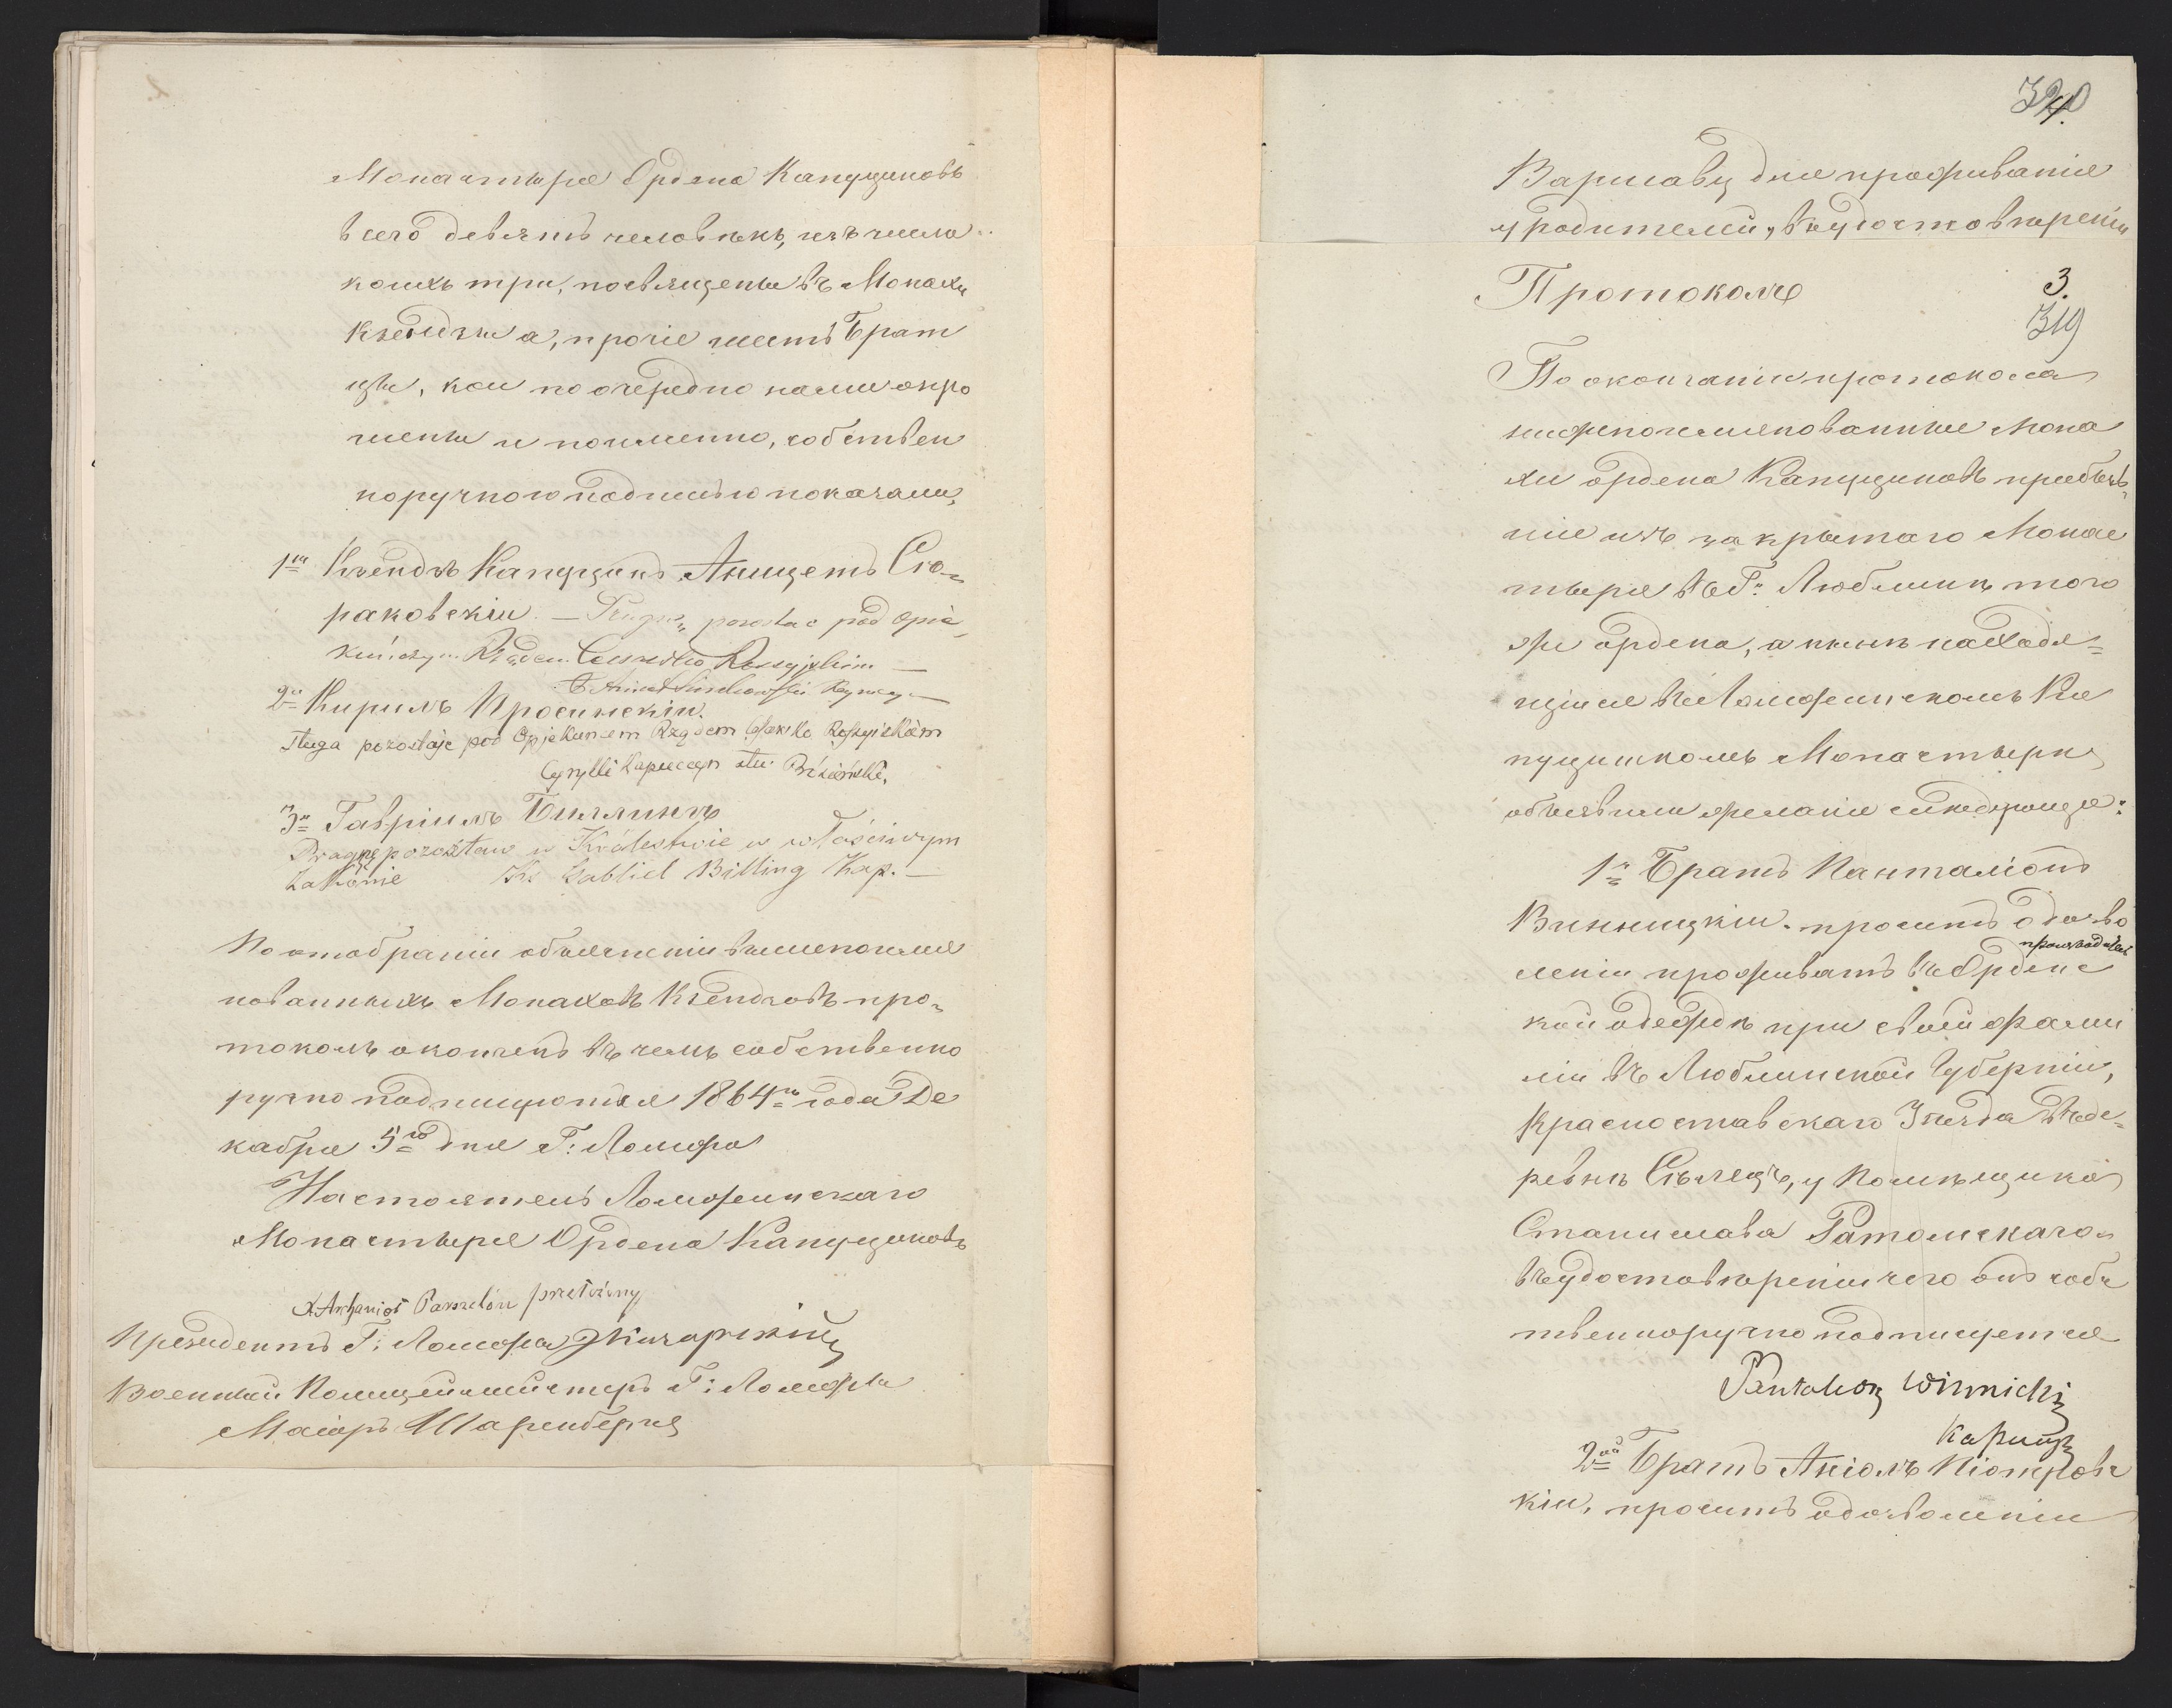 Монастыря Ордена Капуциновъ
всего девять человѣкъ, изъ числа
коихъ три, посвящены въ Монахи
Ксендзы а, прочіе шесть Брат
цы, кои по очередно нами опро
шены и поименно, собствен
норучною подписью показали,
1й Ксендзъ Капуцинъ Аницетъ Сю-
раковскій. — Pragnę pozostac pod opie
kuńczym Rządem Cesarsko Rossyjskim —
2й Кирилъ Просинскій.
Sługa pozostaje pod Opjekunem Rządem Cesarsko Rossyiskiem
Cyrylli Kapucyn
3й Гавріилъ Биллингъ
Pragnę pozostać w Królestwie w właściwym
Zakonie Ks Gabliel Billing Kap. —
По отобраніи объясненіи вышепоиме
нованныхъ Монаховъ Ксендзовъ про-
токолъ оконченъ въ чемъ собственно
ручно подписуются 1864го года Де
кабря 5го дня Г: Ломжа
Настоятель Ломжинскаго
Монастыря Ордена Капуциновъ
X. Archanioł przełożony
Президентъ Г: Ломжа
Военный Полицеймейстеръ Г: Ломжа
Маіоръ
320
Варшаву для проживанія
у родителей, въ удостовѣреніи
Протоколъ
3.
319
По окончаніи протокола
нижепоименованные Мона
хи ордена Капуциновъ прибыв-
шіе изъ закрытаго Монас
тыря въ Г: Люблинѣ того
же ордена, а нынѣ находя=
щіися въ Ломжинскомъ Ка
пуцинскомъ Монастырѣ,
объявили желаніе слѣдующее:
1й Братъ Панталіонъ
Винницкій. проситъ о дозво
леніи проживать въ Орденс
кой одеждѣ при своей фами
ліи въ Люблинской Губерніи,
Красноставскаго Уѣзда въ де-
ревнѣ Сѣлецъ, у Помѣщика
Станислава Ратомскаго
въ удостовѣреніи чего онъ собс
твенноручно подписуется
Pantalion Winnicki
Капуцъ
2ой Братъ Аніолъ Піотровс
кій, проситъ о дозволеніи